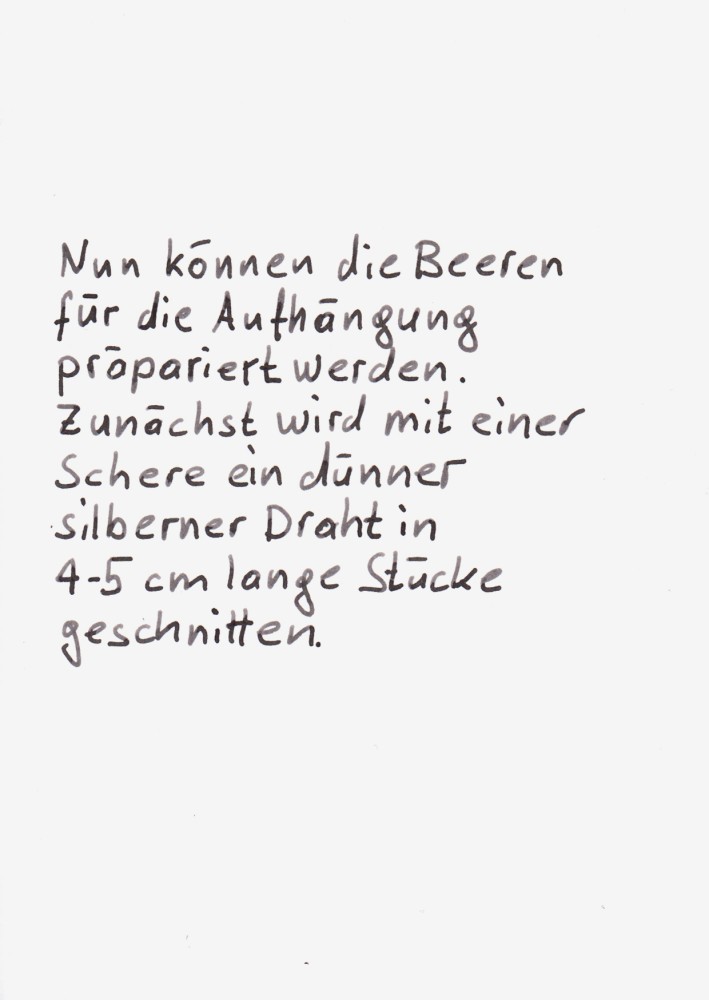 Nun können die Beeren
für die Aufhängung
präpariert werden.
Zunächst wird mit einer
Schere ein dünner
silberner Draht in
4-5 cm lange Stücke
geschnitten.